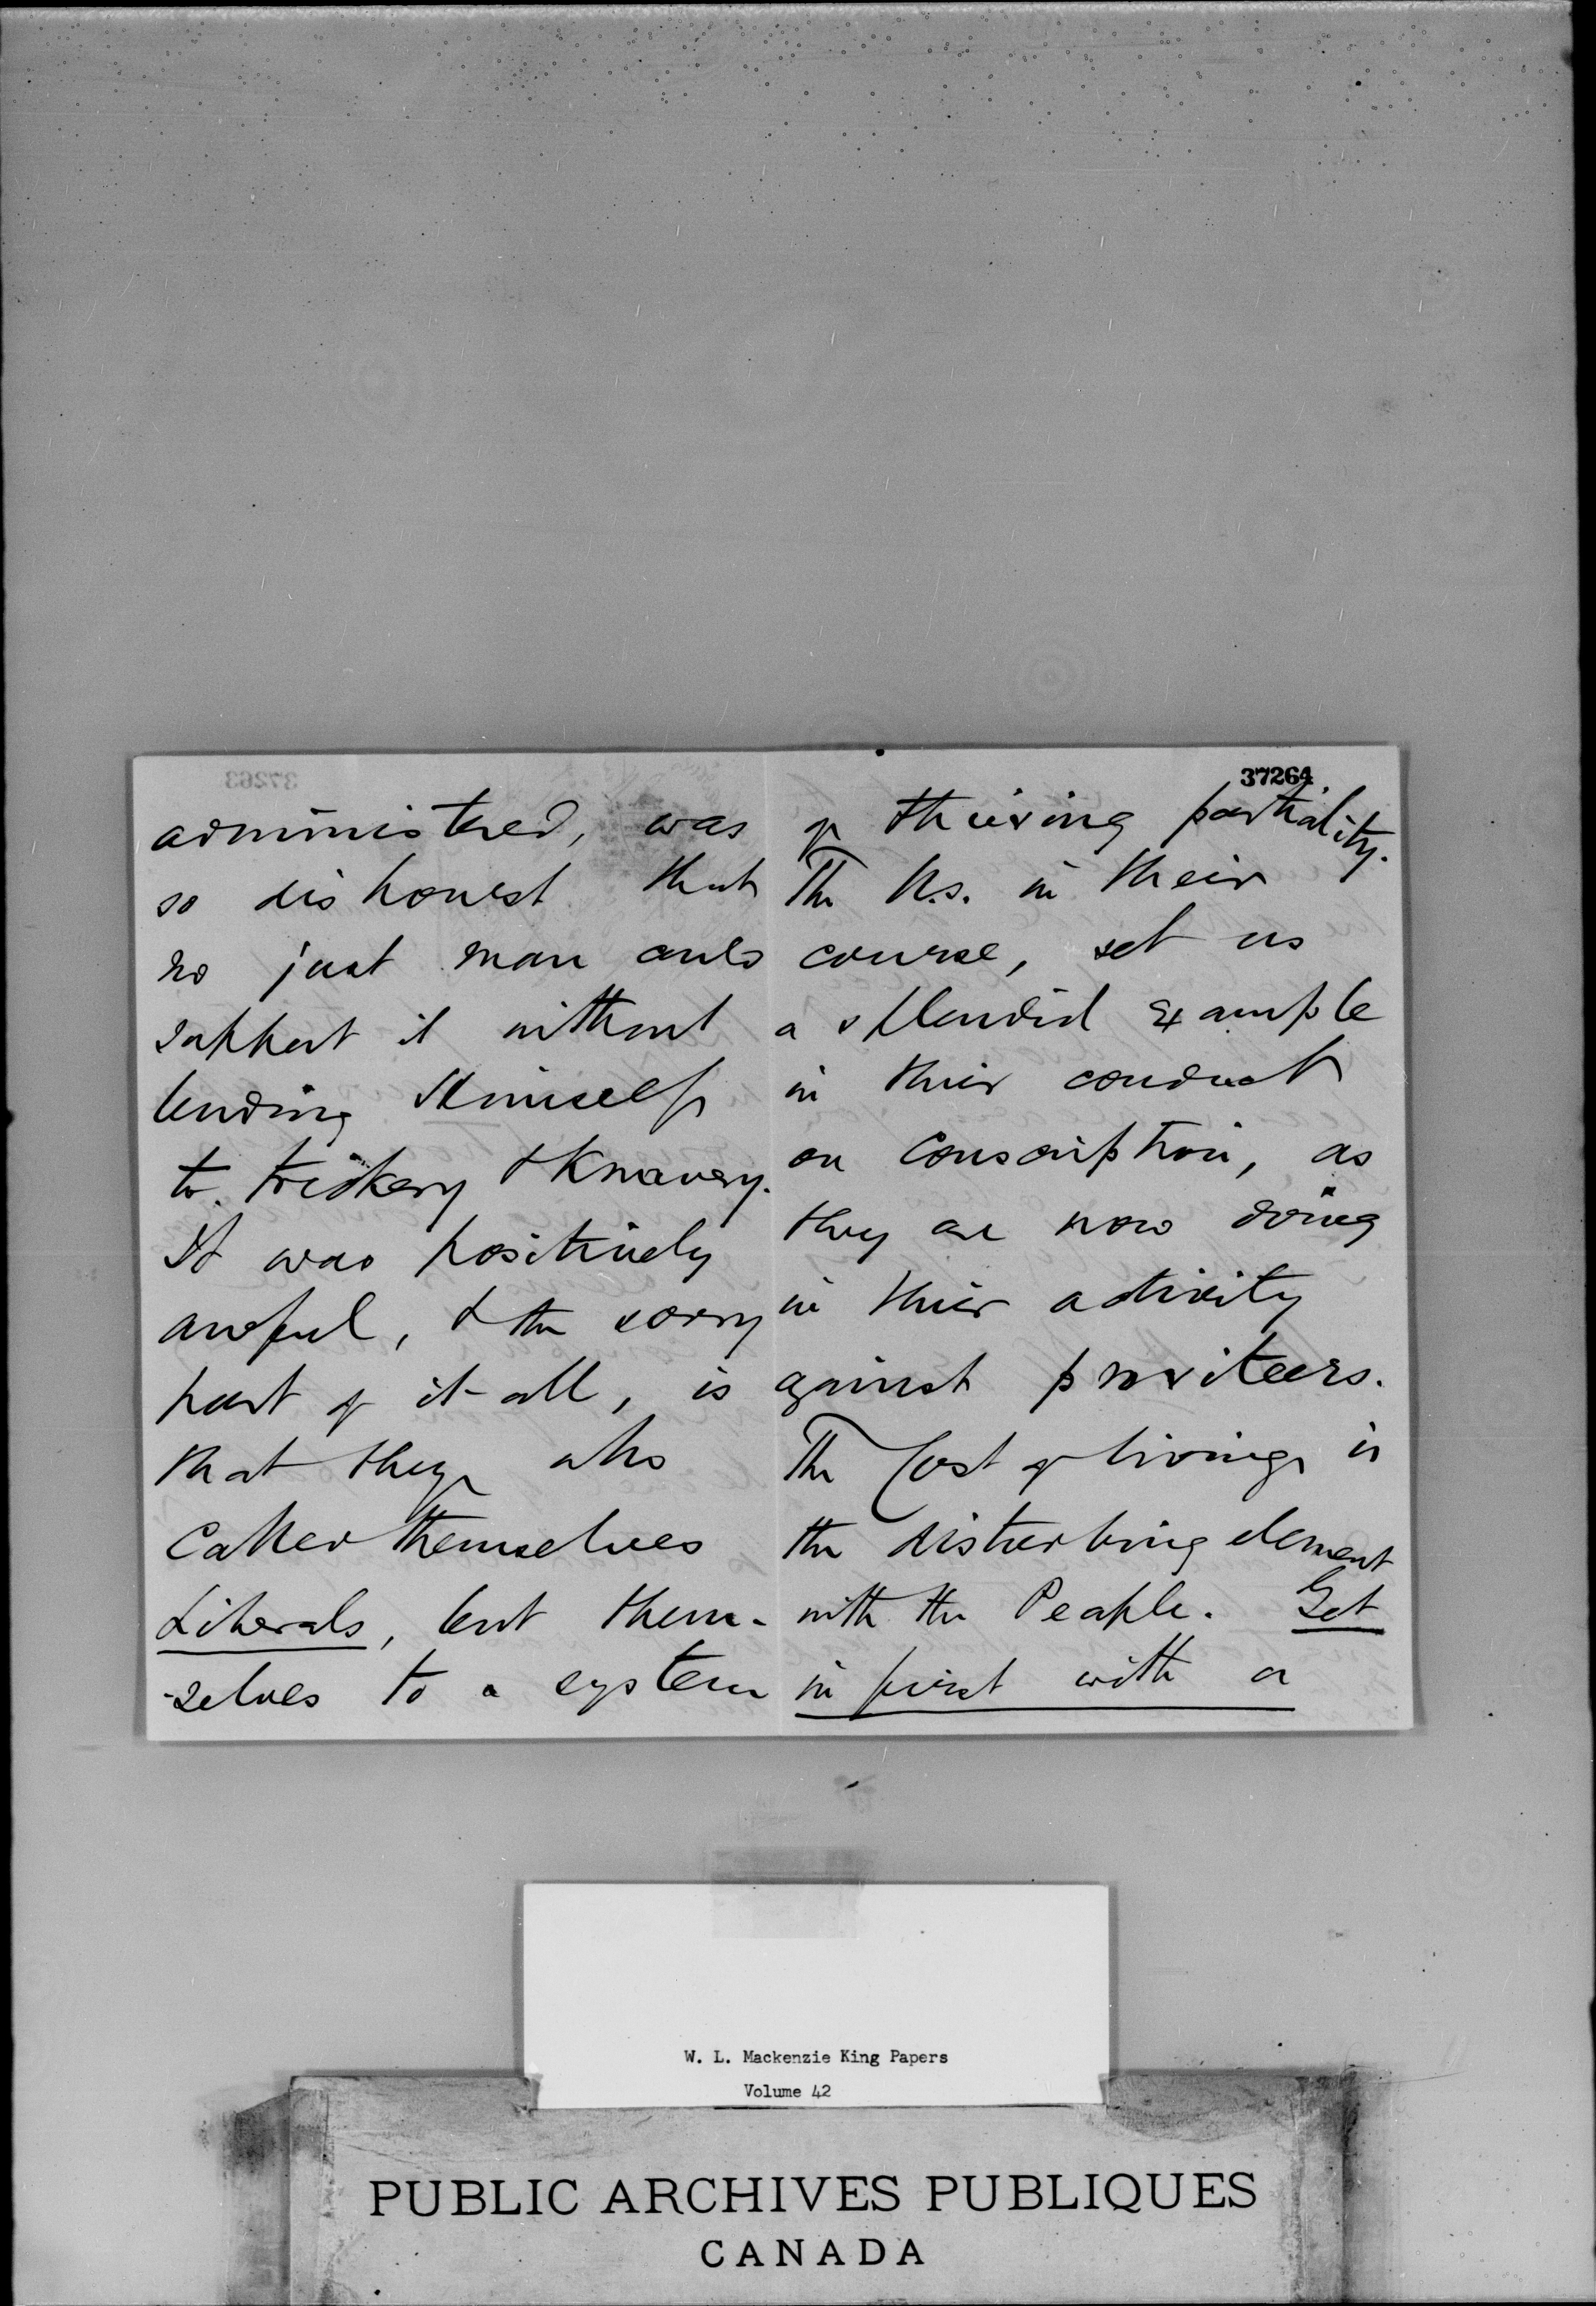 administered, was
so dishonest that
no just man could
support it without
lending himself
to trickery & Knavery.
It was positively
awful, & the sorry
part of it all, is
that they who
called themselves
Liberals, lent them-
-selves to a system
37264
of thieving partiality.
The U.S. in their
course, set us
a splendid example
in their conduct
on Conscription, as
they are now doing
in their activity
against profiteers.
The Cost of living is
the disturbing element
with the People. Get
in first with a
W. L. Mackenzie King Papers
Volume 42
PUBLIC ARCHIVES PUBLIQUES
CANADA